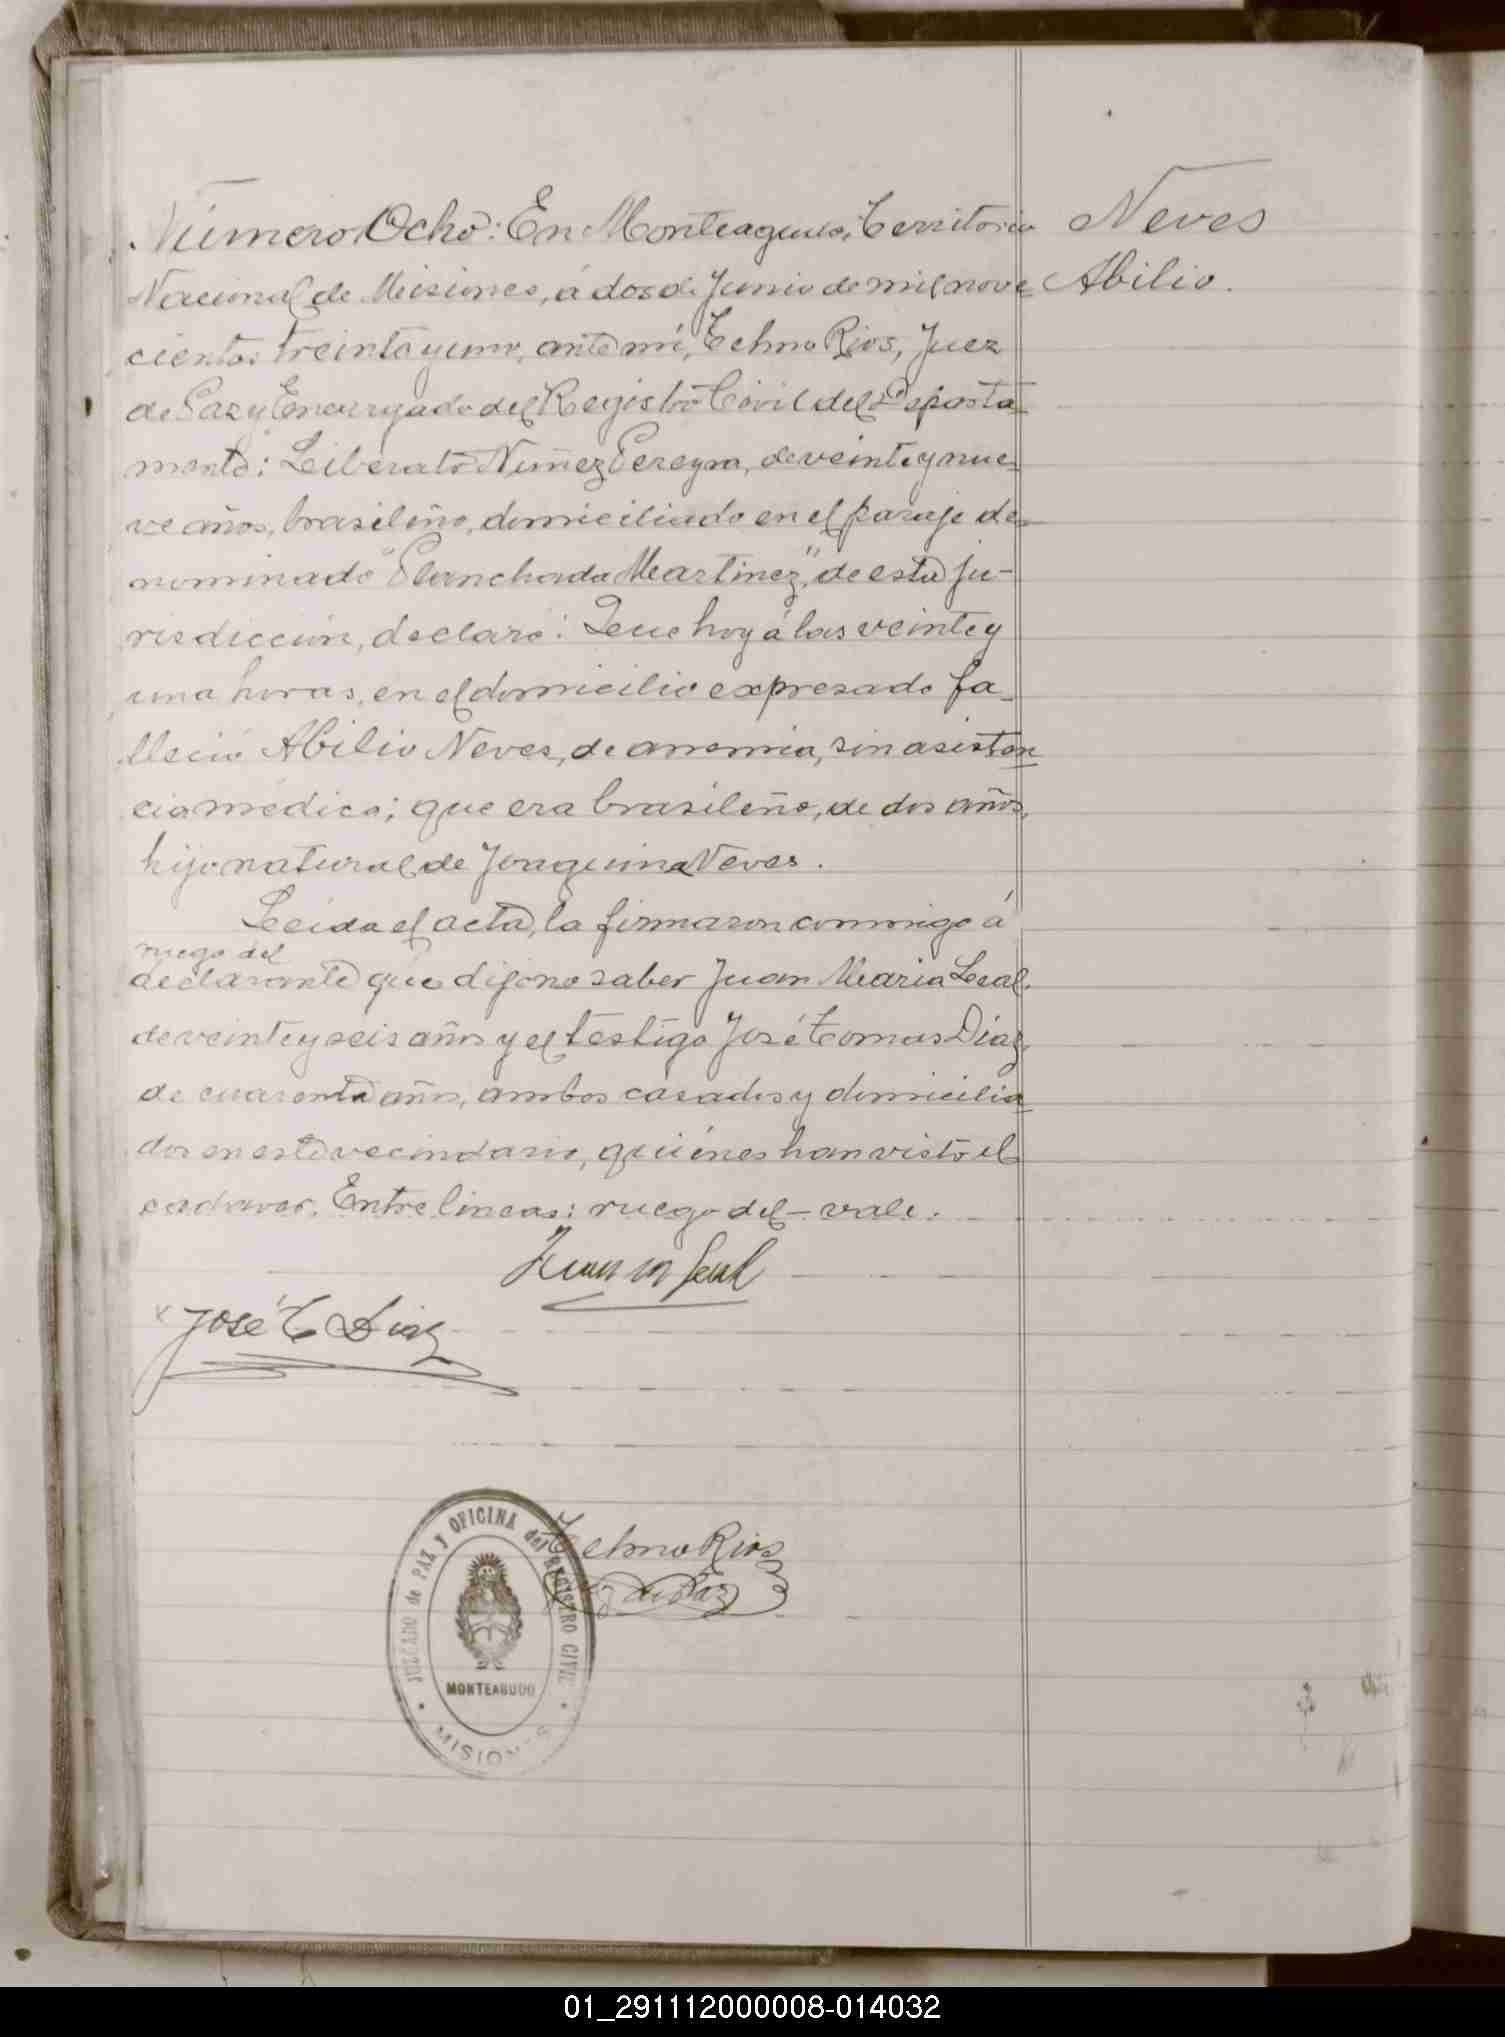 Número Ocho: En Monteagudo, Territorio
Nacional de Misiones, á dos de Junio de mil nove
cientos treinta y uno, ante mí, Telmo Rios, Juez
de Paz y Encargado del Registro Civil del Departa
mento: Liberato Nuñez Pereyra, de veinte y nue-
ve años, brasileño, domiciliado en el paraje de-
nominado "Planchada Martinez", de esta ju-
risdicción, declaró: Que hoy á las veinte y
una horas, en el domicilio expresado fa-
lleció Abilio Neves, de anemia, sin asisten
cia médica; que era brasileño, de dos años,
hijo natural de Joaquina Neves.
Leida el acta, la firmaron conmigo á
ruego del
declarante que dijo no saber Juan Maria Leal,
de veinte y seis años y el testigo José Tomas Diaz,
de cuarenta años, ambos casados y domicilia
dos en este vecindario, quiénes han visto el
cadaver. Entre lineas: ruego del - vale.
Juan M Leal
José T Diaz
Telmo Rios
J. de Paz
JUZGADO de PAZ Y OFICINA del REGISTRO CIVIL
MONTEAGUDO
MISIONES
Neves
Abilio.
01_291112000008-014032